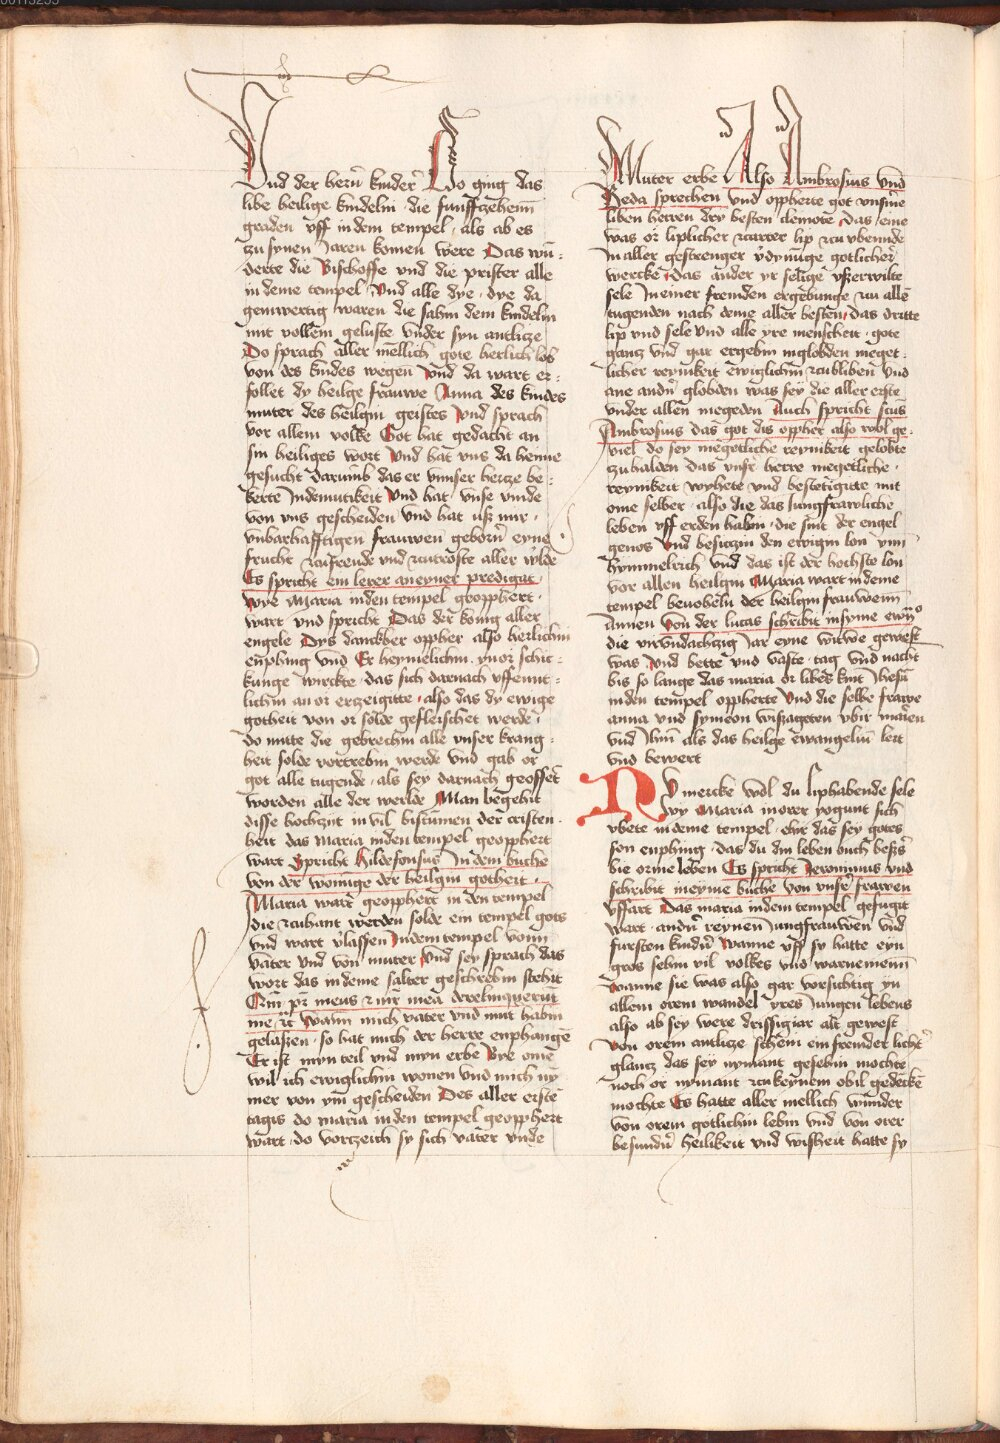 Vnd der hern̄ kinder Do ging das
libe heilige kindelin · die funffzehenn
graden vff in dem tempel · als ab es
zu synen Jaren komen were Das wū-
derte die Bischoffe vnd die prister alle
in deme tempel · vnd alle dye · dye da
genwertig waren die sahin dem kindelin
mit vollem geluste vnder syn antlicze
Do sprach aller mellich gote herlich lob
von des kindes wegen vnd da wart er-
follet dy heilge frauwe Anna des kindes
muter des heilgin geistes vnd sprach
vor allem volke Got hat gedacht an
sin heiliges wort vnd hat vns da heime
gesucht darumb das er vnnser hercze be-
kerte Indemutikeit vnd hat vnse vinde
von vns gescheiden vnd hat usz mir ·
vnbarhafftigen frauwen geborn eyne
frucht zcufreude vnd zcutroste aller w̄lde
Es spricht ein lerer aneyner predigat ·
wye Maria inden tempel geoppfert ·
wart vnd spricht Das der konig aller
engele Dys danckber oppher also herlichin
enphing vnd Er heymelichin yn or schic-
kunge wirckte · das sich darnach vffennt-
lichin an or erczeigitte · also das dy ewige
gotheit von or solde gefleischet werde ·
do mitte die gebrechin alle vnser krang-
heit solde vortrebin werde vnd gab or
got alle tugende · als sey darnach geoffet
worden alle der werlde Man begehit
disse hochzyt in vil bistumen der cristen-
heit das Maria inden tempel geoppfert
wart Spricht Hildefonsus In dem buche
von der woninge der heilgin gotheit ·
Maria wart geoppfert in den tempel
die zcuhant werden solde ein tempel gots
vnd wart v̓lassen Indem tempel vonn
vater vnd von muter vnd sey sprach das
wort das in deme salter geschrebin stehit
Qm̄ pr̄ meus et mr̄ mea dereliquerūt
me ꝛc wann mich vater vnd mut̓ habin
gelaszen · so hat mich der herre enphangē
Er ist myn teil vnd myn erbe Bye ome
wil ich ewiglichin wonen vnd mich ny-
mer von ym gescheiden Des aller erstē
tagis do maria inden tempel geoppfert
wart · do vorczeich sy sich vater vnde
Muter erbe Also Ambrosius vnd
Beda sprechen vnd oppherte got vnsm̄e
liben herren dry besten clēnote Das eine
was or liplicher zcarter lip zcu vbennde
In aller gestrenger v̓dynūge gotlicher
wercke · das ander yr selige vszerwilte
sele In einer fremden ergebunge zcu allē
tugenden nach deme aller besten · das dritte
lip vnd sele vnd alle yre menscheit · gote
gancz vnd gar ergebin in globden meget-
licher reynikeit ewiglichin zcubliben vnd
ane andn̄ globden was sey die aller erste
vnder allen megeden Auch spricht scūs
Ambrosius das got dis oppher also wol ge-
viel do sey megetliche reynikeit gelobte
zu halden das vnser herre megetliche ·
reynikeit wyhete vnd bestetigitte mit
ome selber · also die das Jungfrawliche
leben vff erden habin · die sint der engel
genos vnd besiczin den ewigin lon ynn
hymmelrich vnd das ist der hochste lon
vor allen heilgin Maria wart in deme
tempel beuoheln der heilgin frauwenn
Annen von der lucas schribit in syme ewn̄°
die vir vnd achczig Jar eyne witwe gewest
was vnd bette vnd vaste · tag vnd nacht
bis so lange das maria or libes kint Ihesū
inden tempel oppherte vnd die selbe frawe
anna vnd symeon wiszageten vbir marien
vnd Ihm̄ als das heilge ewangeliū lert
vnd bewert
NV mercke wol du liphabende sele
wy Maria in orer yogunt sich
vbete in deme tempel · ehir das sey gotes
son enphing · das du din leben auch bessirs
bie orme leben Es spricht Jeronimus vnd
schribit in eyme buche von vnser frawen
vffart Das maria indem tempel gefugit
wart · andn̄ reynen Jungfrauwen vnd
fursten kindn̄ Wanne vff sy hatte eyn
gros sehin vil volkes vnd warnemenn
Wanne sie was also gar vorsichtig yn
allem orem wandel yres Jungen lebens
also ab sey were drissig iar alt gewest
Von orem antlicze schein ein fremder licht̓
glancz das sey nymant gesehin mochte
noch or nymant zcu keynem obil gedēckē
mochte Es hatte aller mellich wunder
von orem gotlichin lebin vnd von orer
besundn̄ heilikeit vnd wisheit hatte sy